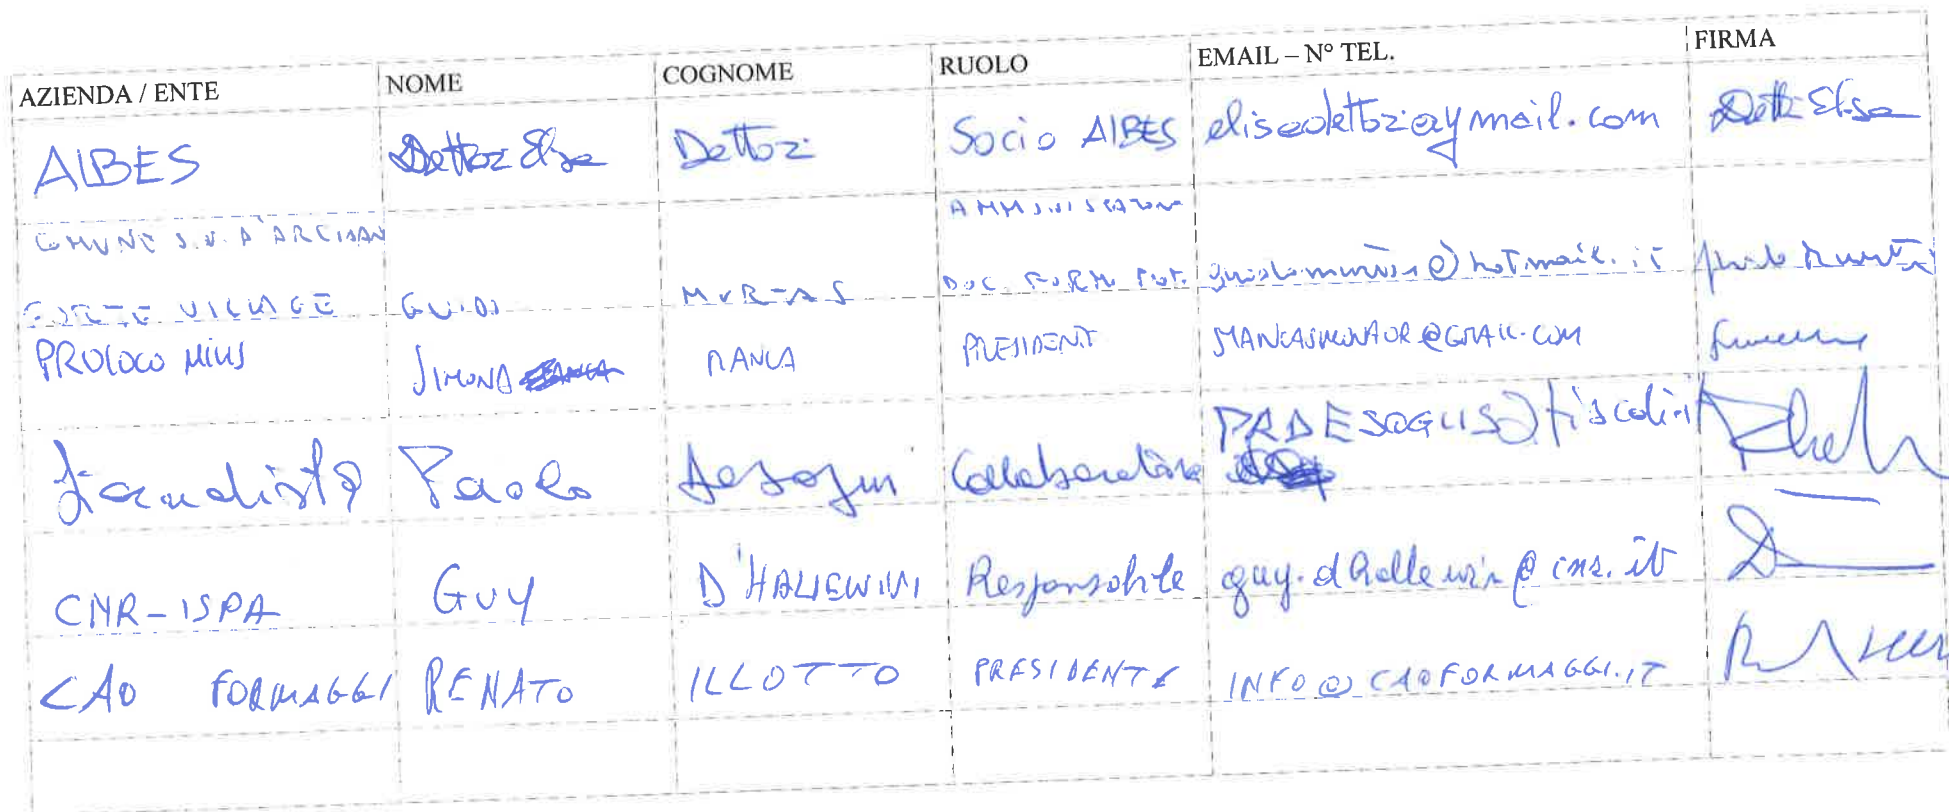 AZIENDA / ENTE NOME COGNOME RUOLO EMAIL – N° TEL. FIRMA
AIBES Dettori Elisa Dettori Socio AIBES elisedettori@ymail.com Dettori Elisa
COMUNE S.N. D'ARCIDAN
FORTE VILLAGE GUIDO MUR-AS DOC. FORM @hotmail.it
PROLOCO MILIS SIMONA MANCA PRESIDENT MANCASIMONAOR@GMAIL.COM
Paolo Desogus Collaboratore
CNR-ISPA GUY D'HALLEWIN Responsabile guy.dhallewin@cnr.it
CAO FORMAGGI RENATO ILLOTTO PRESIDENTE INFO@CAOFORMAGGI.IT